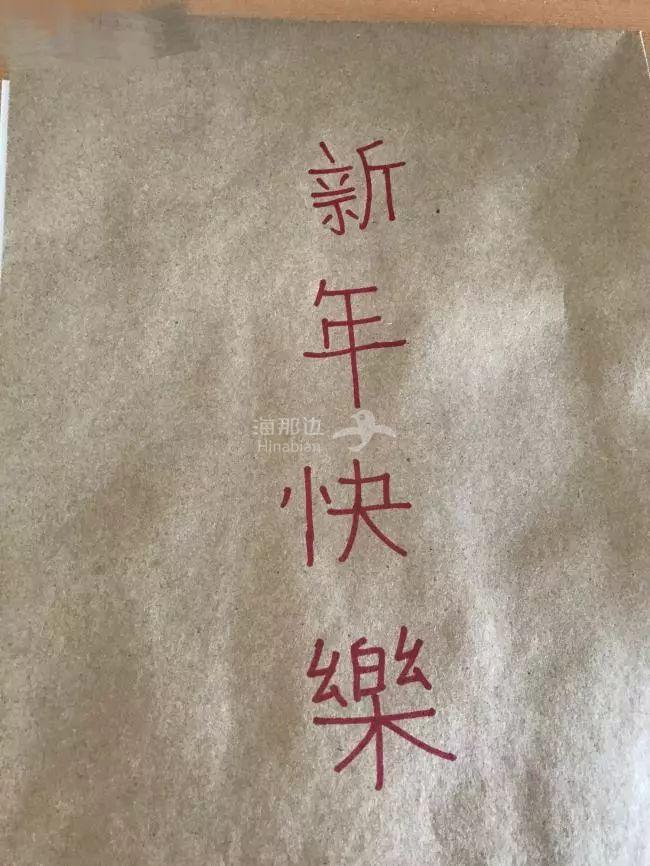 新年快樂
海那边
Hinabian